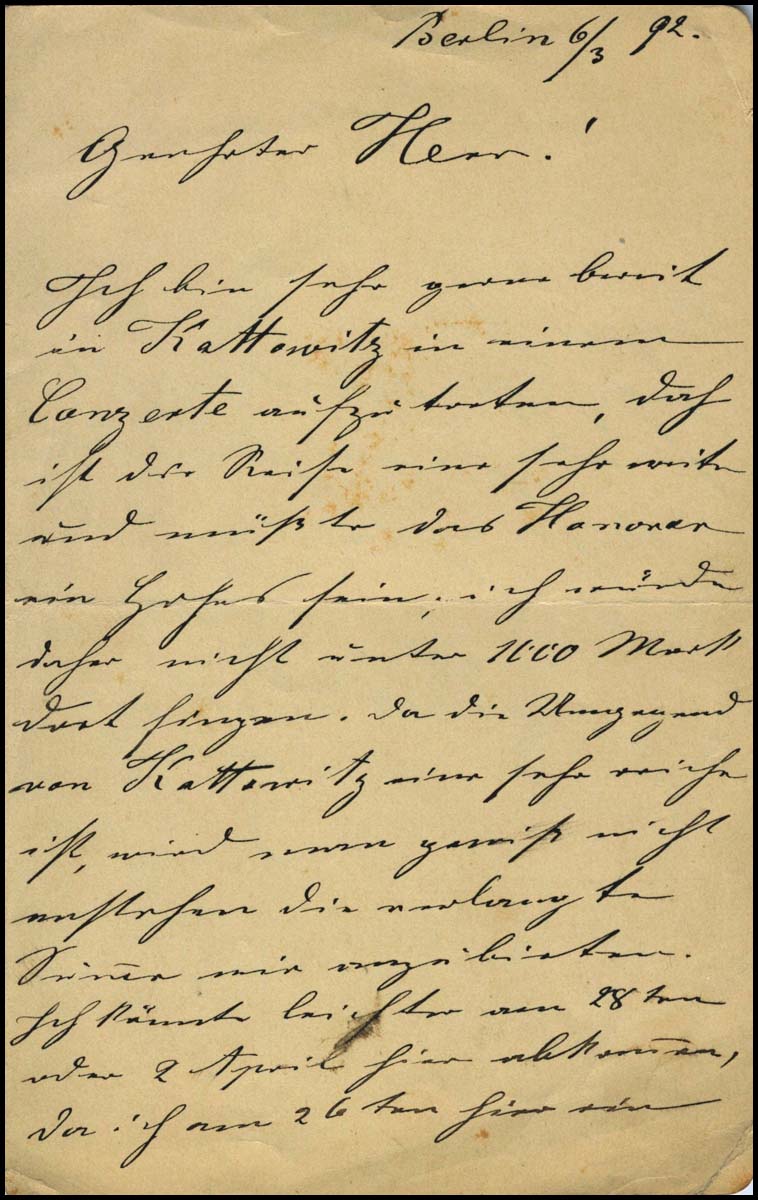 Berlin 6/3 92.
Geehrter Herr!
Ich bin sehr gerne bereit
in Kattowitz in einem
Conzerte aufzutreten, doch
ist die Reise eine sehr weite
und müßte das Honorar
ein Hohes sein, ich würde
daher nicht unter 1000 Mark
dort singen. Da die Umgegend
von Kattowitz eine sehr reiche
ist, wird man gewiß nicht
anstehen die verlangte
Summe mir anzubieten.
Ich könnte leichter am 28ten
oder 2 April hier abkommen,
da ich am 26ten hier ein